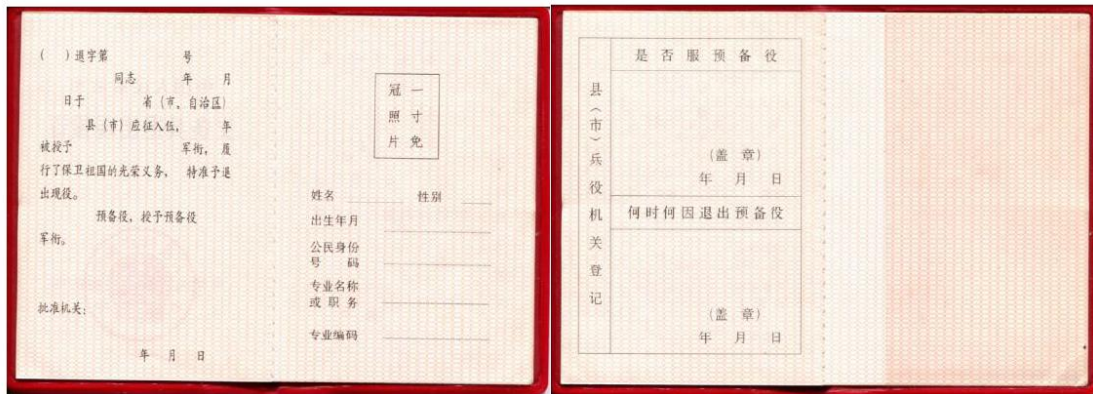 (　)退字第　　　　号
同志　　　年　月
日于　　　省(市、自治区)
县(市)应征入伍,　　年
被授予　　　　　军衔,履
行了保卫祖国的光荣义务,特准予退
出现役。
预备役,授予预备役
军衔。
批准机关:
年　月　日
一寸免
冠照片
姓名　　　性别
出生年月
公民身份
号　码
专业名称
或职务
专业编码
县(市)兵役机关登记
是否服预备役
(盖　章)
年　月　日
何时何因退出预备役
(盖　章)
年　月　日